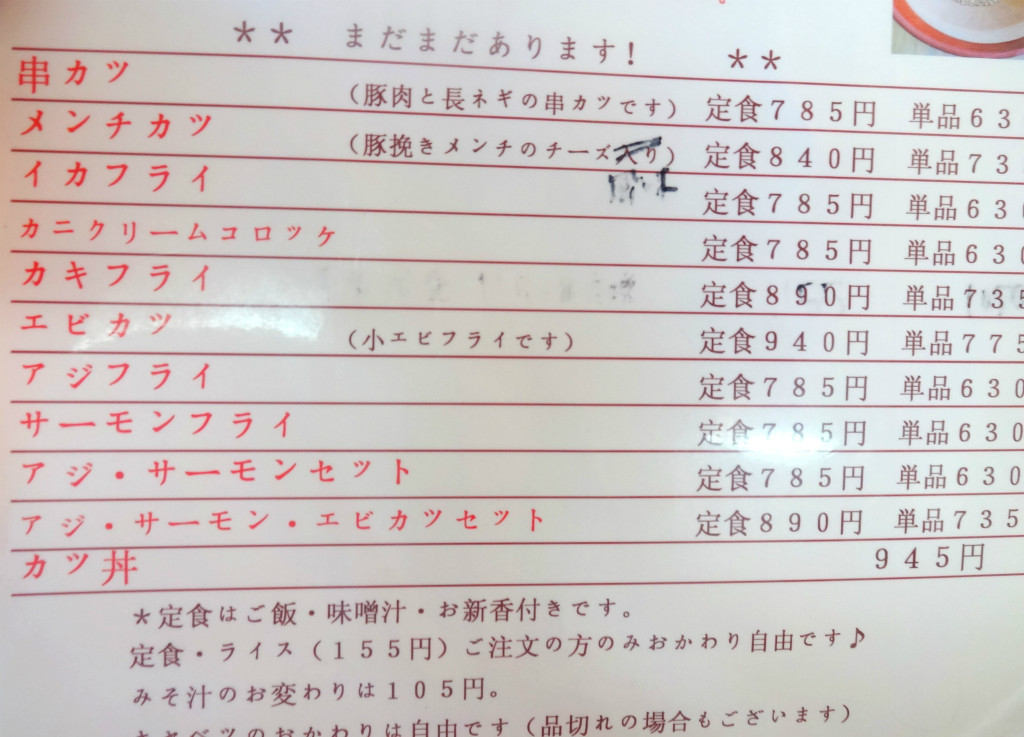 ＊＊　まだまだあります！　＊＊
串カツ　（豚肉と長ネギの串カツです）　定食７８５円　単品６３
メンチカツ　（豚挽きメンチのチーズ入り）　定食８４０円　単品７３
イカフライ　定食７８５円　単品６３０
カニクリームコロッケ　定食７８５円　単品６３０
カキフライ　定食８９０円　単品７３５
エビカツ　（小エビフライです）　定食９４０円　単品７７５
アジフライ　定食７８５円　単品６３０
サーモンフライ　定食７８５円　単品６３０
アジ・サーモンセット　定食７８５円　単品６３０
アジ・サーモン・エビカツセット　定食８９０円　単品７３５
カツ丼　９４５円
＊定食はご飯・味噌汁・お新香付きです。
定食・ライス（１５５円）ご注文の方のみおかわり自由です♪
みそ汁のお変わりは１０５円。
キャベツのおかわりは自由です（品切れの場合もございます）